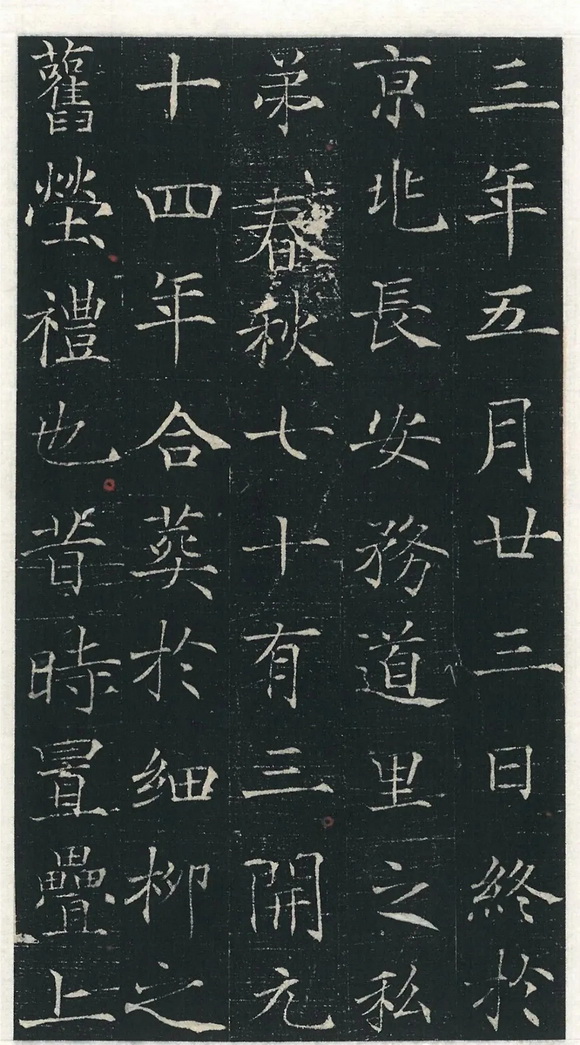 三年五月廿三日終於
京兆長安務道里之私
弟春秋七十有三開元
十四年合葬於細柳之
舊塋禮也昔時置疊上